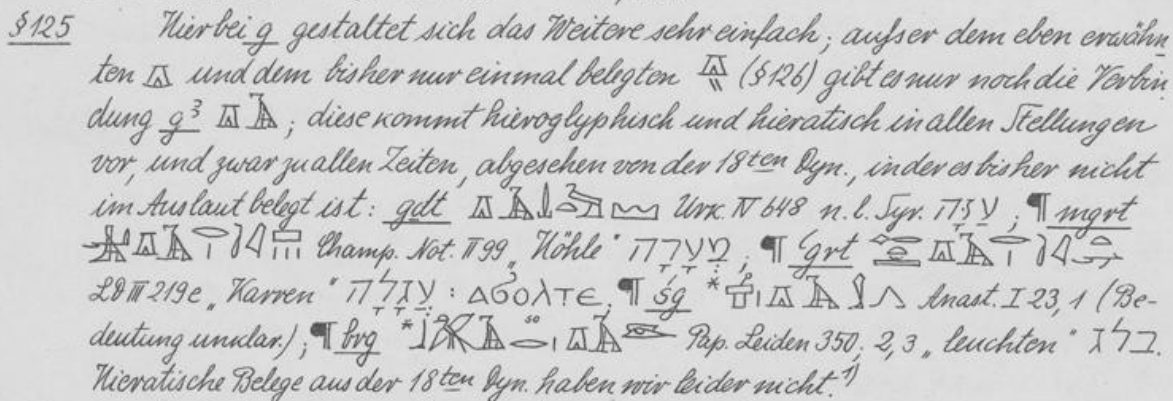 §125 Hierbei g gestaltet sich das Weitere sehr einfach; aufser dem eben erwähn
ten 𓎼 und dem bisher nur einmal belegten 𓎼 (§126) gibt es nur noch die Verbin
dung gȝ 𓎼𓄿; diese kommt hieroglyphisch und hieratisch in allen Stellungen
vor, und zwar zu allen Zeiten, abgesehen von der 18ten Dyn., in der es bisher nicht
im Auslaut belegt ist: gdt 𓎼𓄿 Urk. IV 648 n. l. Syr. עַזָּה; ¶ mgrt
𓎼𓄿 Champ. Not. II 99 „Höhle“ מְעָרָה; ¶ ʿgrt 𓎼𓄿
LD III 219e „Karren“ עֲגָלָה : ⲁϭⲟⲗⲧⲉ, ¶ śg * 𓎼𓄿 Anast. I 23, 1 (Be-
deutung unklar.); ¶ brg * so 𓎼𓄿 Pap. Leiden 350; 2,3 „leuchten“ בלג.
Hieratische Belege aus der 18ten Dyn. haben wir leider nicht.1)